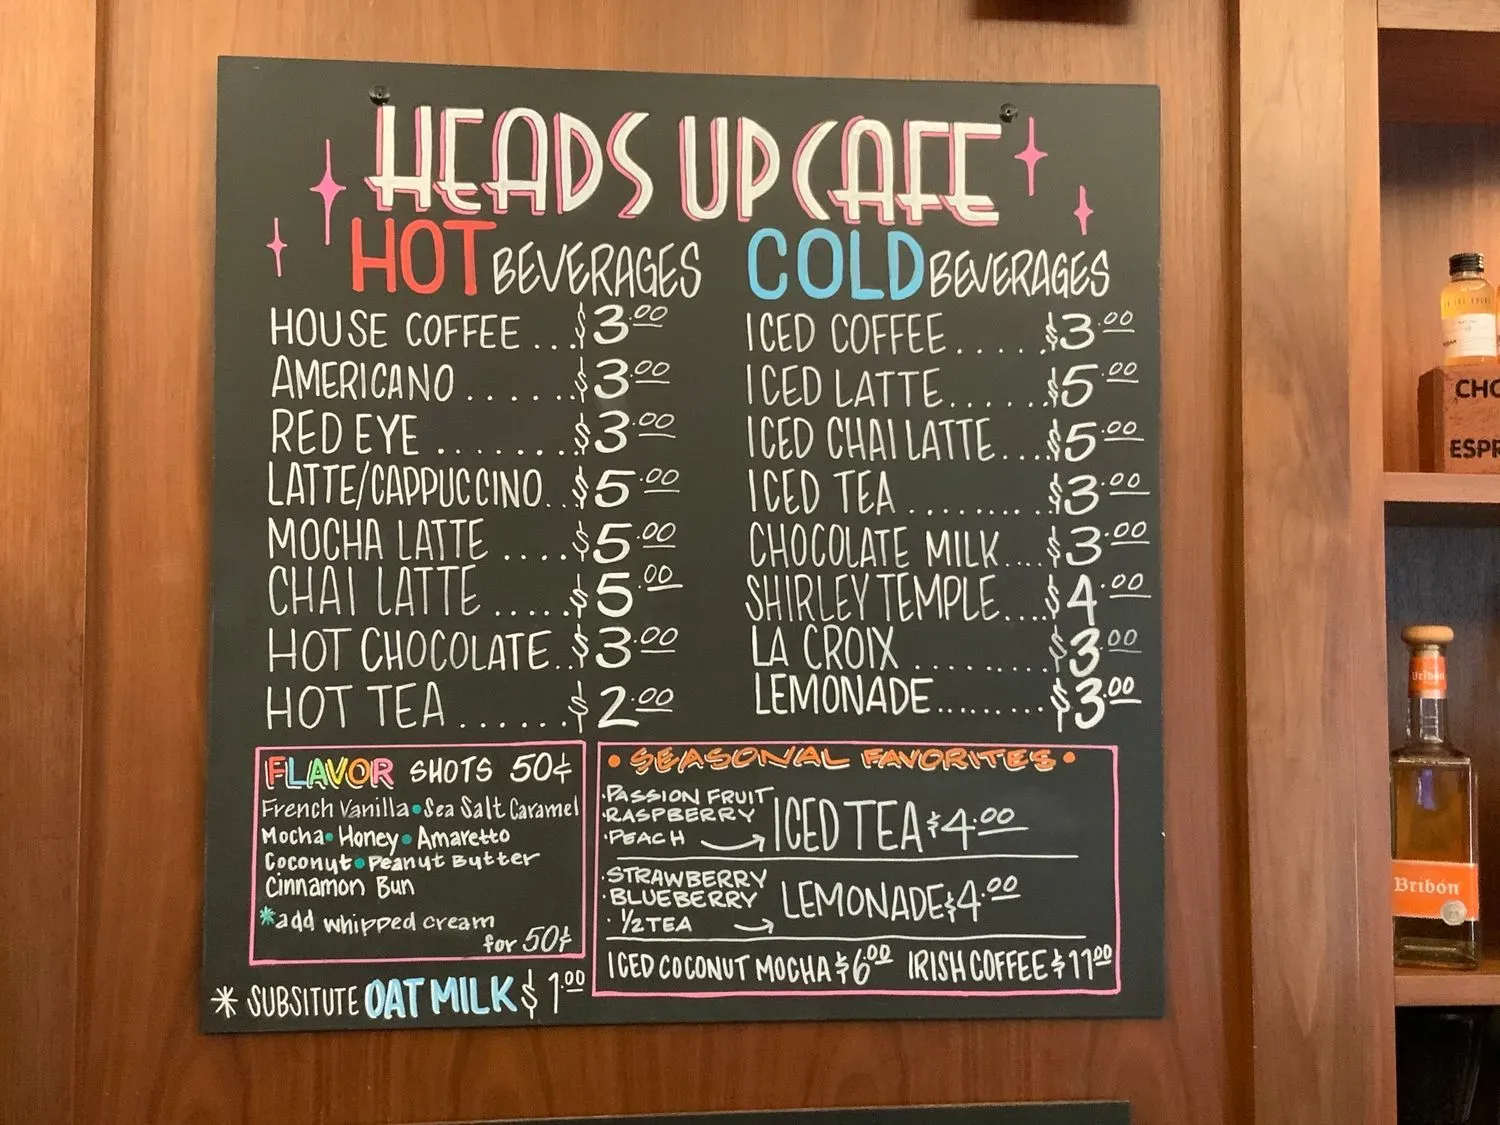 HEADS UP CAFE
HOT BEVERAGES
HOUSE COFFEE ... $3.00
AMERICANO ...... $3.00
RED EYE ........ $3.00
LATTE/CAPPUCCINO.. $5.00
MOCHA LATTE .... $5.00
CHAI LATTE ..... $5.00
HOT CHOCOLATE.. $3.00
HOT TEA ...... $2.00
COLD BEVERAGES
ICED COFFEE..... $3.00
ICED LATTE...... $5.00
ICED CHAI LATTE... $5.00
ICED TEA ........ $3.00
CHOCOLATE MILK.... $3.00
SHIRLEY TEMPLE.... $4.00
LA CROIX ........ $3.00
LEMONADE......... $3.00
FLAVOR SHOTS 50¢
French Vanilla • Sea Salt Caramel
Mocha • Honey • Amaretto
Coconut • Peanut Butter
Cinnamon Bun
*add whipped cream
for 50¢
* SUBSITUTE OAT MILK $1.00
• SEASONAL FAVORITES •
·PASSION FRUIT
·RASPBERRY
·PEACH → ICED TEA $4.00
·STRAWBERRY
·BLUEBERRY
· 1/2 TEA → LEMONADE $4.00
ICED COCONUT MOCHA $6.00 IRISH COFFEE $11.00
CHO
ESPR
Bribón
Bribón